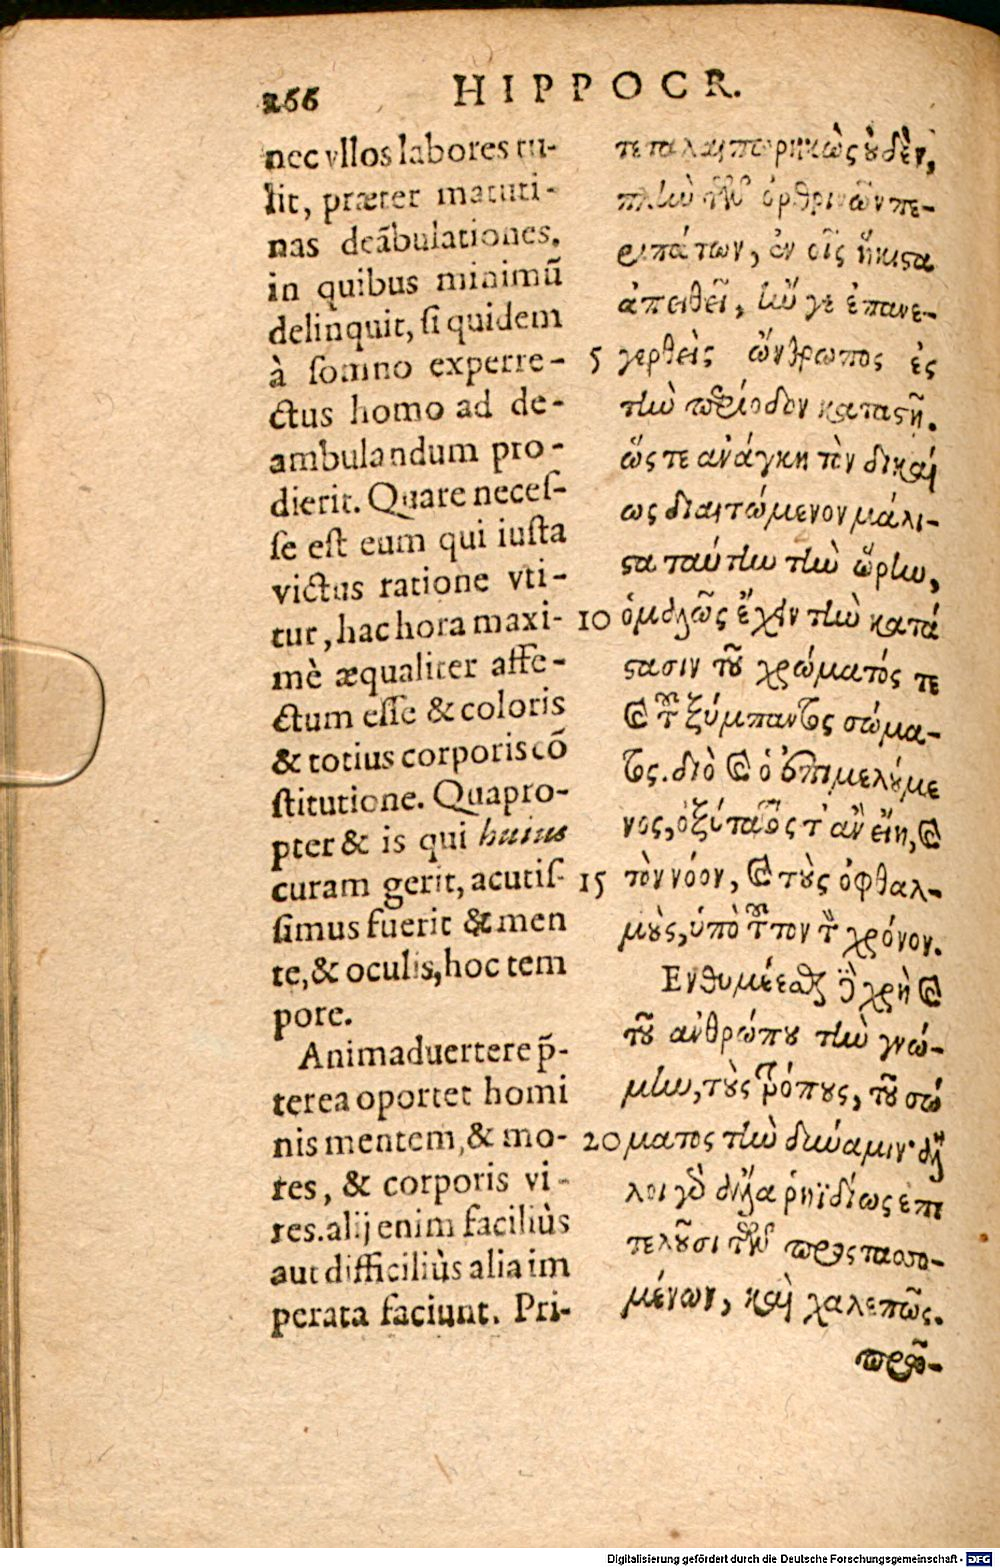 266
HIPPOCR.
nec vllos labores tu-
lit, præter matuti-
nas deãbulationes.
in quibus minimũ
delinquit, si quidem
à somno experre-
ctus homo ad de-
ambulandum pro-
dierit. Quare neces-
se est eum qui iusta
victus ratione vti-
tur, hac hora maxi-
mè æqualiter affe-
ctum esse & coloris
& totius corporis cõ
stitutione. Quapro-
pter & is qui huius
curam gerit, acutis-
simus fuerit & men
te, & oculis, hoc tem
pore.
Animaduertere p̃-
terea oportet homi
nis mentem, & mo-
res, & corporis vi-
res. alij enim faciliùs
aut difficiliùs alia im
perata faciunt. Pri-
τεταλαιπωρηκὼς ȣ̓δὲν,
πλὴν τῶν ὀρθρινῶν πε-
ριπάτων, ἐν οἷς ἥκιϛα
ἀπειθεῖ, ἤν γε ἐπανε-
5 γερθεὶς ὥνθρωπος ἐς
τὴν περίοδον καταϛῇ.
ὥς τε ανάγκη τὸν δικαί
ως διαιτώμενον μάλι-
ϛα ταύτην τὴν ὥρην,
10 ὁμαλῶς ἔχειν τὴν κατά
ϛασιν τȣ͂ χρώματός τε
καὶ τȣ͂ ξύμπαντος σώμα-
τος. διὸ καὶ ὁ ἐπιμελȣ́με
νος, ὀξύτατός τ' ἂν εἴη, καὶ
15 τὸν νόον, καὶ τȣ̀ς ὀφθαλ-
μȣ̀ς, ὑπὸ τȣ͂τον τὸν χρόνον.
Ενθυμέεσθαι δὲ χρὴ καὶ
τȣ͂ ανθρώπȣ τὴν γνώ-
μην, τȣ̀ς τρόπȣς, τȣ͂ σώ
20 ματος τὴν δύναμιν· ἄλ
λοι γὰρ ἄλλα ῥηϊδίως επι
τελȣ͂σι τῶν προςτασσο-
μένων, καὶ χαλεπῶς.
πρῶ-
Digitalisierung gefördert durch die Deutsche Forschungsgemeinschaft - DFG